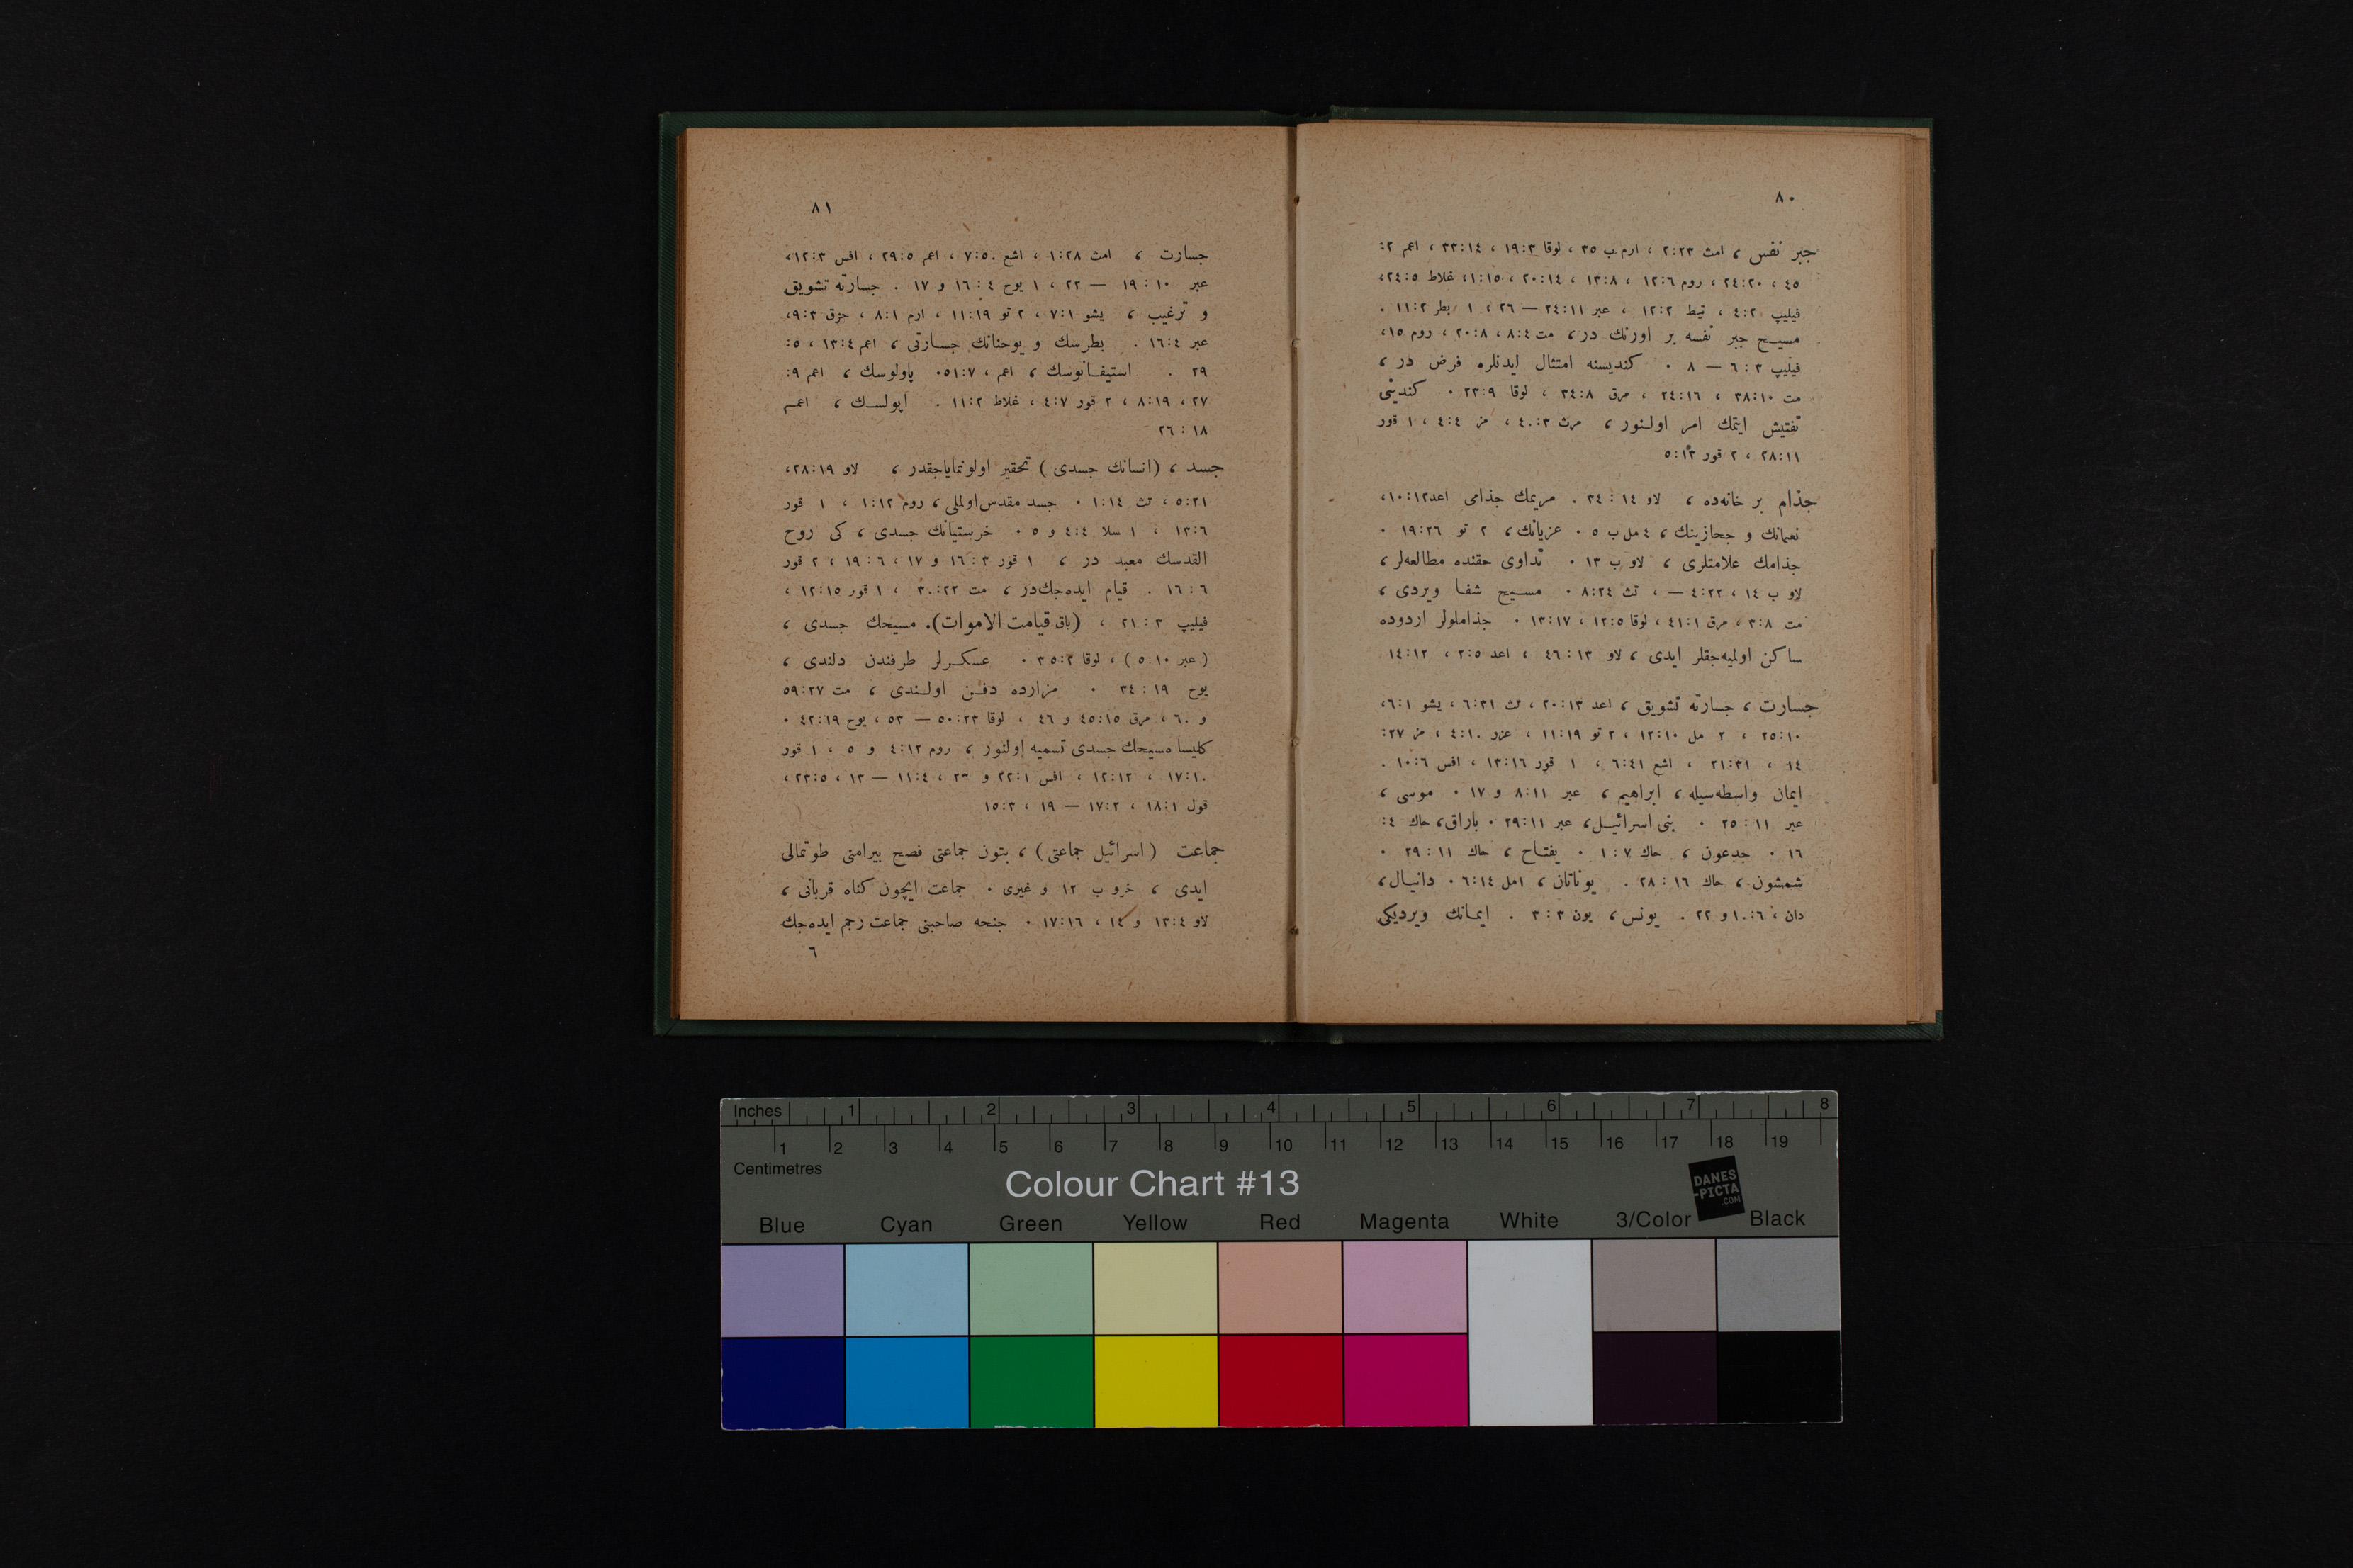 ٨٠
جبر نفس ، امث ٢:٢٣ ، ارم ب ٣٥ ، لوقا ١٩:٣ ، ٣٣:١٤ ، اعم ٢:
٤٥ ، ٢٤:٢٠ ، روم ١٢:٦ ، ١٣:٨ ، ٢٠:١٤ ، ١:١٥، غلاط ٢٤:٥،
فيليپ ٤:٢ ، تيط ١٢:٢ ، عبر ٢٤:١١ — ٢٦ ، ١ بطر ١١:٢ .
مسيح جبر نفسه بر اورنك در، مت ٨:٤ ، ٢٠:٨ ، روم ١٥،
فيليپ ٢ : ٦ — ٨ . كنديسنه امتثال ايدنلره فرض در ،
مت ٣٨:١٠ ، ٢٤:١٦ ، مرق ٣٤:٨ ، لوقا ٢٣:٩ . كندينى
تفتيش ايتمك امر اولنور ، مرث ٤٠:٣ ، مز ٤:٤ ، ١ قور
٢٨:١١ ، ٢ قور ٥:١٣
جذام بر خانه‌ده ، لاو ١٤ : ٣٤ . مريمك جذامى اعد ١٠:١٢،
نعمانك و جحازينك ، ٤ مل ب ٥ . عزيانك ، ٢ تو ١٩:٢٦ .
جذامك علامتلرى ، لاو ب ١٣ . تداوى حقنده مطالعه‌لر ،
لاو ب ١٤ ، ٤:٢٢ — ، تث ٨:٢٤ . مسيح شفا ويردى ،
مت ٣:٨ ، مرق ٤١:١ ، لوقا ١٢:٥ ، ١٣:١٧ . جذاملولر اردوده
ساكن اولميه‌جقلر ايدى ، لاو ١٣ : ٤٦ ، اعد ٢:٥ ، ١٤:١٢
جسارت ، جسارته تشويق ، اعد ٢٠:١٣ ، تث ٦:٣١ ، يشو ٦:١،
٢٥:١٠ ، ٢ مل ١٢:١٠ ، ٢ تو ١١:١٩ ، عزر ٤:١٠ ، مز ٢٧:
١٤ ، ٢١:٣١ ، اشع ٦:٤١ ، ١ قور ١٣:١٦ ، افس ١٠:٦ .
ايمان واسطه‌سيله ، ابراهيم ، عبر ٨:١١ و ١٧ . موسى ،
عبر ١١ : ٢٥ . بنى اسرائيل، عبر ٢٩:١١ . باراق، حاك ٤:
١٦ . جدعون ، حاك ٧ : ١ . يفتاح ، حاك ١١ : ٢٩ .
شمشون ، حاك ١٦ : ٢٨ . يوناتان ، ١مل ٦:١٤ . دانيال،
دان ، ١٠:٦ و ٢٢ . يونس ، يون ٣ : ٣ . ايمانك ويرديكى
٨١
جسارت ، امث ١:٢٨ ، اشع ٧:٥٠ ، اعم ٢٩:٥ ، افس ١٢:٣،
عبر ١٠ : ١٩ — ٢٢ ، ١ يوح ٤ : ١٦ و ١٧ . جسارته تشويق
و ترغيب ، يشو ٧:١ ، ٢ تو ١١:١٩ ، ارم ٨:١ ، حزق ٩:٣،
عبر ١٦:٤ . بطرسك و يوحنانك جسارتى ، اعم ١٣:٤ ، ٥:
٢٩ . استيفانوسك ، اعم ، ٥١:٧. پاولوسك ، اعم ٩:
٢٧ ، ٨:١٩ ، ٢ قور ٤:٧ ، غلاط ١١:٢ . اپولسك ، اعم
١٨ : ٢٦
جسد ، (انسانك جسدى) تحقير اولونماياجقدر ، لاو ٢٨:١٩،
٥:٢١ ، تث ١:١٤ . جسد مقدس اولملى ، روم ١:١٢ ، ١ قور
١٣:٦ ، ١ سلا ٤:٤ و ٥ . خرستيانك جسدى ، كى روح
القدسك معبد در ، ١ قور ٣ : ١٦ و ١٧ ، ٦ : ١٩ ، ٢ قور
٦ : ١٦ . قيام ايده‌جك‌در ، مت ٣٠:٢٢ ، ١ قور ١٢:١٥ ،
فيليپ ٣ : ٢١ ، (باق قيامت الاموات). مسيحك جسدى ،
(عبر ٥:١٠) ، لوقا ٣٥:٢ . عسكرلر طرفندن دلندى ،
يوح ١٩ : ٣٤ . مزارده دفن اولندى ، مت ٥٩:٢٧
و ٦٠ ، مرق ٤٥:١٥ و ٤٦ ، لوقا ٥٠:٢٣ — ٥٣ ، يوح ٤٢:١٩ .
كليسا مسيحك جسدى تسميه اولنور ، روم ٤:١٢ و ٥ ، ١ قور
١٧:١٠ ، ١٢:١٢ ، افس ٢٢:١ و ٢٣ ، ١١:٤ — ١٣ ، ٢٣:٥ ،
قول ١٨:١ ، ١٧:٢ — ١٩ ، ١٥:٣
جماعت (اسرائيل جماعتى) ، بتون جماعتى فصح بيرامنى طوتمالى
ايدى ، خرو ب ١٢ و غيرى . جماعت ايچون كناه قربانى ،
لاو ١٣:٤ و ١٤ ، ١٧:١٦ . جنحه صاحبنى جماعت رجم ايده‌جك
٦
Inches 1 2 3 4 5 6 7 8
1 2 3 4 5 6 7 8 9 10 11 12 13 14 15 16 17 18 19
Centimetres
Colour Chart #13
DANES
-PICTA
.COM
Blue Cyan Green Yellow Red Magenta White 3/Color Black